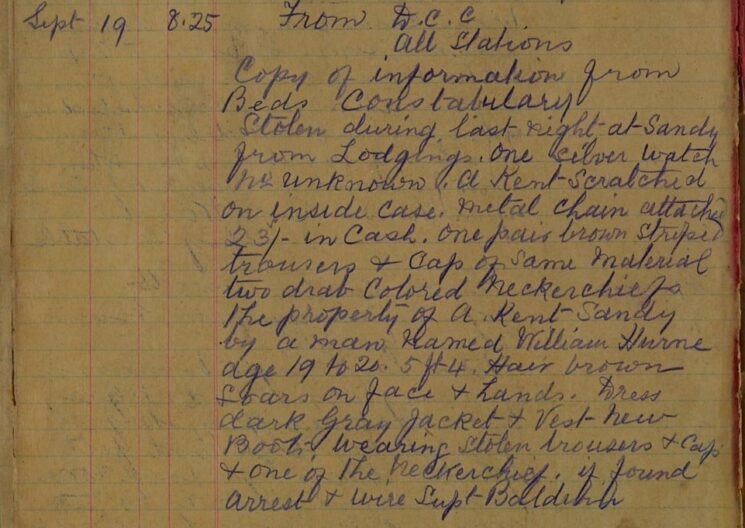 Sept 19 8.25 From D.C.C
All Stations
Copy of information from
Beds Constabulary
Stolen during last night at Sandy
from Lodgings. One Silver Watch
No unknown. A Kent Scratched
on inside case. Metal Chain attached
23/- in Cash. One pair brown Striped
trousers & Cap of Same Material
two drab Colored Neckerchiefs
the property of A Kent Sandy
by a man Named William Hurne
age 19 to 20. 5 ft 4. Hair brown
Scars on face & hands. Dress
dark Gray Jacket & Vest New
Boots Wearing Stolen trousers & Cap
& one of the Neckerchief. if found
arrest & wire Supt